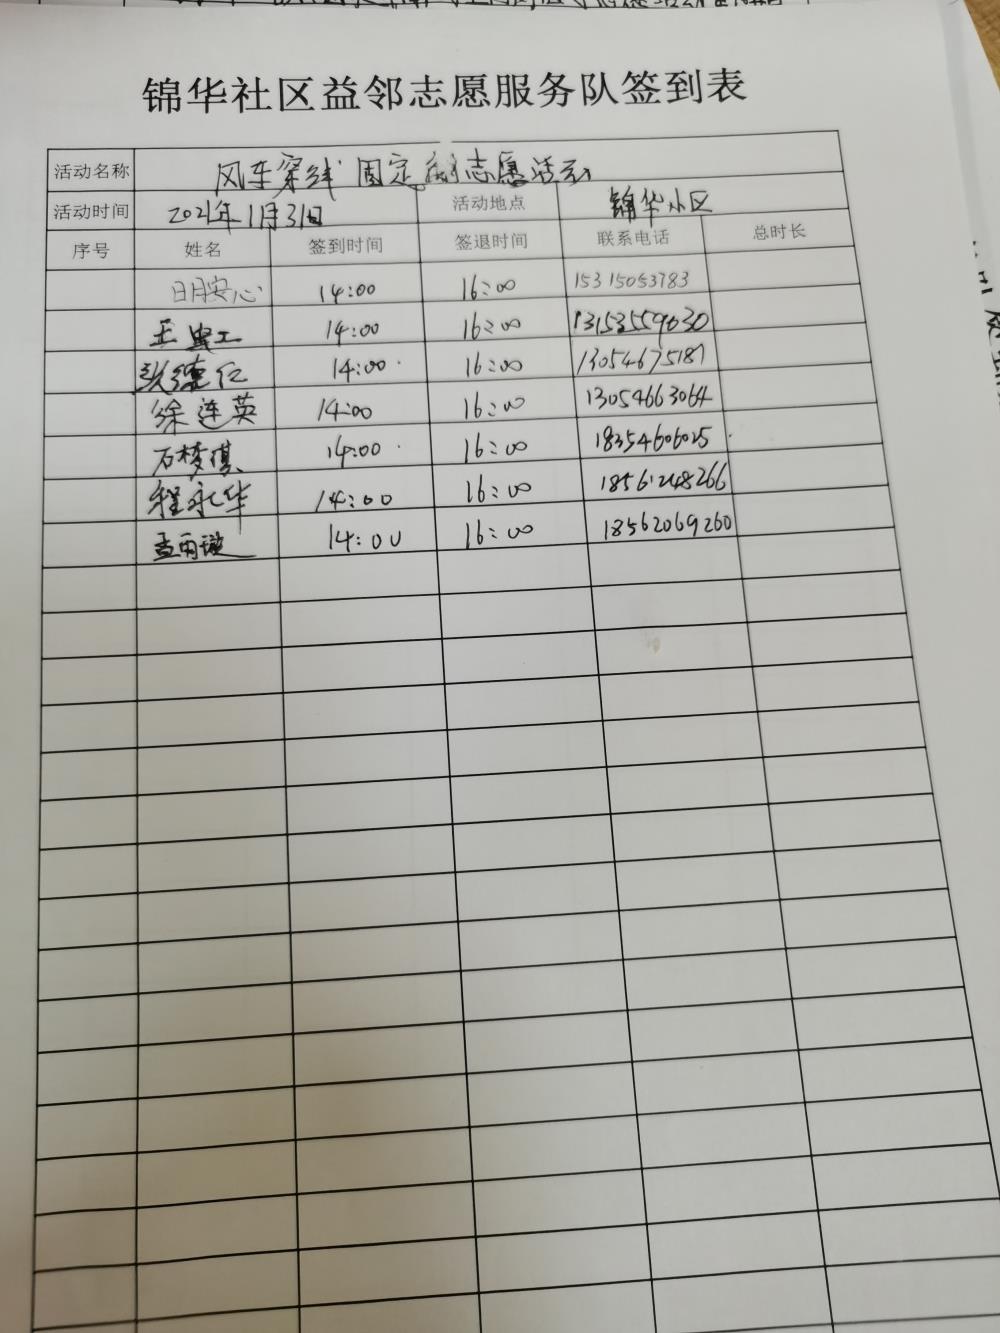 锦华社区益邻志愿服务队签到表
活动名称 风车穿线 固定 志愿活动
活动时间 2021年1月31日 活动地点 锦华小区
序号 姓名 签到时间 签退时间 联系电话 总时长
日月安心 14:00 16:00 15315053783
王 14:00 16:00 13153559630
德仁 14:00 16:00 13054675187
徐连英 14:00 16:00 13054663064
石梦琪 14:00 16:00 18354606025
程永华 14:00 16:00 18561248266
孟雨璇 14:00 16:00 18562069260